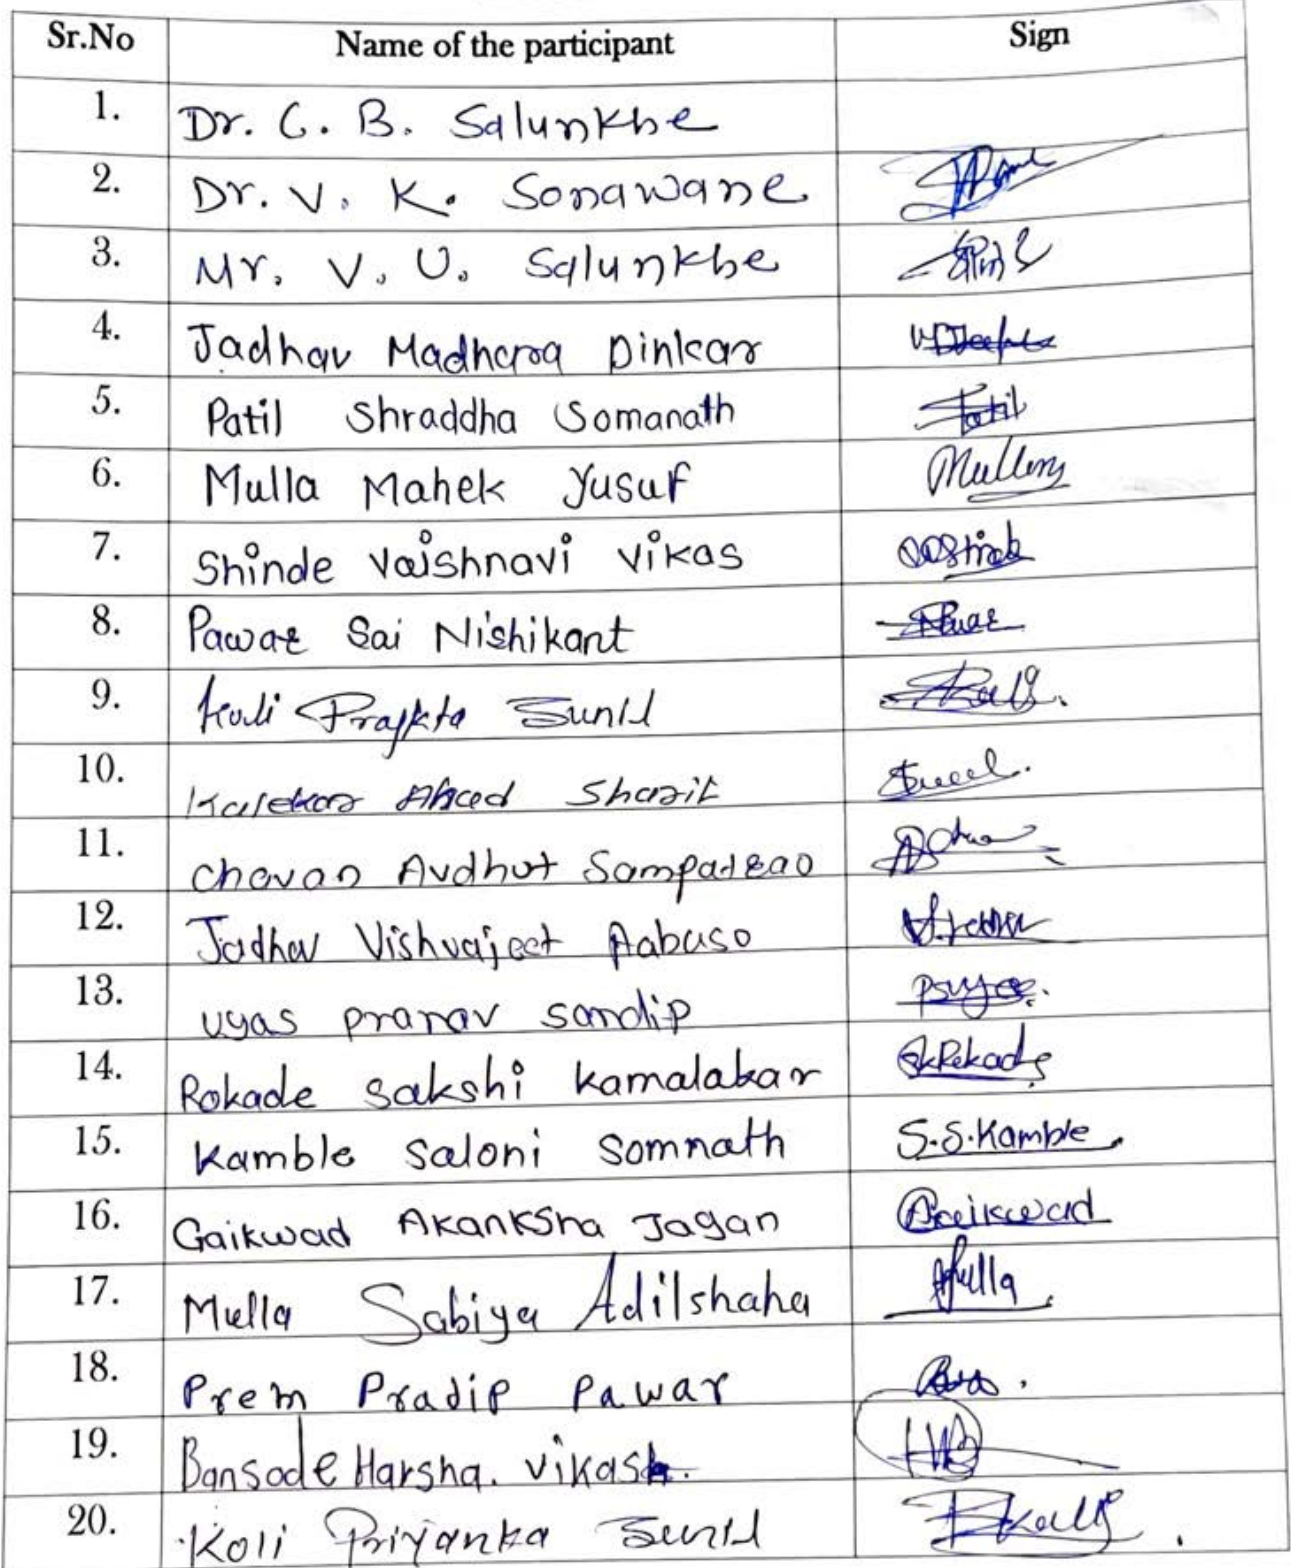 Sr.No Name of the participant Sign
1. Dr. C. B. Salunkhe
2. Dr. V. K. Sonawane
3. Mr. V. U. Salunkhe
4. Jadhav Dinkar
5. Patil Shraddha Somanath Patil
6. Mulla Mahek Yusuf
7. Shinde Vaishnavi Vikas
8. Pawar Sai Nishikant
9. Koli Prajkta Sunil
10. Sharif
11. Chavan Avdhut Sampatrao
12. Jadhav Vishvajeet Aabaso
13. vyas pranav sandip
14. Rokade Sakshi Kamalakar SkRokade
15. Kamble Saloni Somnath S.S.Kamble.
16. Gaikwad Akanksha Jagan Gaikwad
17. Mulla Sabiya Adilshaha Mulla
18. Prem Pradip Pawar
19. Bansode Harsha. Vikas
20. Koli Priyanka Sunil